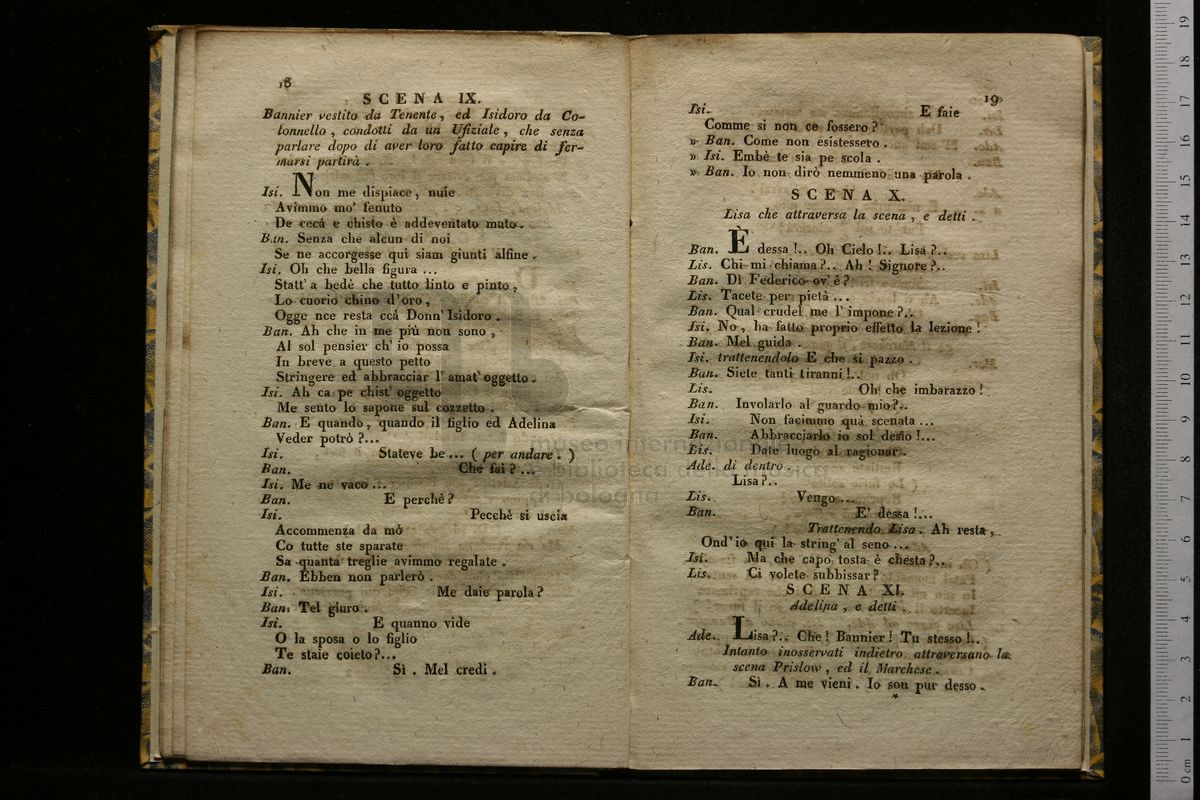 18
SCENA IX.
Bannier vestito da Tenente, ed Isidoro da Co-
lonnello, condotti da un Ufiziale, che senza
parlare dopo di aver loro fatto capire di fer-
marsi partirà.
Isi. Non me dispiace, nuie
Avimmo mo' fenuto
De cecà e chisto è addeventato muto.
Ban. Senza che alcun di noi
Se ne accorgesse qui siam giunti alfine.
Isi. Oh che bella figura ...
Statt' a bedè che tutto linto e pinto,
Lo cuorio chino d'oro,
Ogge nce resta ccà Donn' Isidoro.
Ban. Ah che in me più non sono,
Al sol pensier ch' io possa
In breve a questo petto
Stringere ed abbracciar l' amat' oggetto.
Isi. Ah ca pe chist' oggetto
Me sento lo sapone sul cozzetto.
Ban. E quando, quando il figlio ed Adelina
Veder potrò?...
Isi. Stateve be... ( per andare. )
Ban. Che fai? ...
Isi. Me ne vaco ...
Ban. E perchè?
Isi. Pecchè si uscia
Accommenza da mò
Co tutte ste sparate
Sa quanta treglie avimmo regalate.
Ban. Ebben non parlerò.
Isi. Me daie parola?
Ban. Tel giuro.
Isi. E quanno vide
O la sposa o lo figlio
Te staie coieto?...
Ban. Sì. Mel credi.
19
Isi. E faie
Comme si non ce fossero?
» Ban. Come non esistessero.
» Isi. Embè te sia pe scola.
» Ban. Io non dirò nemmeno una parola.
SCENA X.
Lisa che attraversa la scena, e detti.
Ban. È dessa!.. Oh Cielo!.. Lisa?..
Lis. Chi mi chiama?.. Ah! Signore?..
Ban. Dì Federico ov' è?
Lis. Tacete per pietà ...
Ban. Qual crudel me l' impone?..
Isi. No, ha fatto proprio effetto la lezione!
Ban. Mel guida.
Isi. trattenendolo E che si pazzo.
Ban. Siete tanti tiranni!..
Lis. Oh che imbarazzo!
Ban. Involarlo al guardo mio?..
Isi. Non facimmo quà scenata ...
Ban. Abbracciarlo io sol desìo!...
Lis. Date luogo al ragionar.
Ade. di dentro
Lisa?..
Lis. Vengo ...
Ban. E' dessa!...
Trattenendo Lisa. Ah resta,
Ond' io qui la string' al seno ...
Isi. Ma che capo tosta è chesta?..
Lis. Ci volete subbissar?
SCENA XI.
Adelina, e detti.
Ade. Lisa?.. Che! Bannier! Tu stesso!..
Intanto inosservati indietro attraversano la
scena Prislow, ed il Marchese.
Ban. Sì. A me vieni. Io son pur desso.
*
museo internazionale
e biblioteca della musica
di bologna